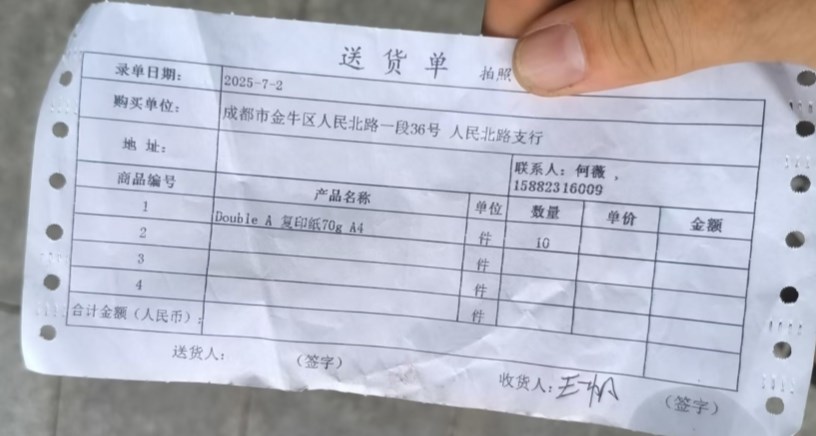 送货单 拍照
录单日期： 2025-7-2
购买单位： 成都市金牛区人民北路一段36号 人民北路支行
地 址： 联系人：何薇，
15882316009
商品编号 产品名称 单位 数量 单价 金额
1 Double A 复印纸70g A4 件 10
2 件
3 件
4 件
合计金额（人民币）：
送货人： （签字） 收货人：王帆 （签字）